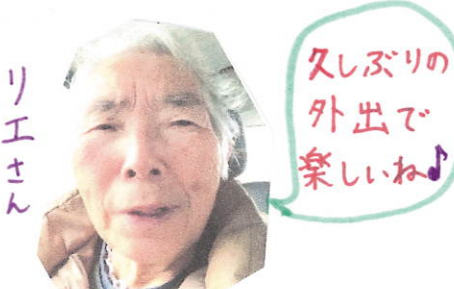 リエさん
久しぶりの
外出で
楽しいね♪